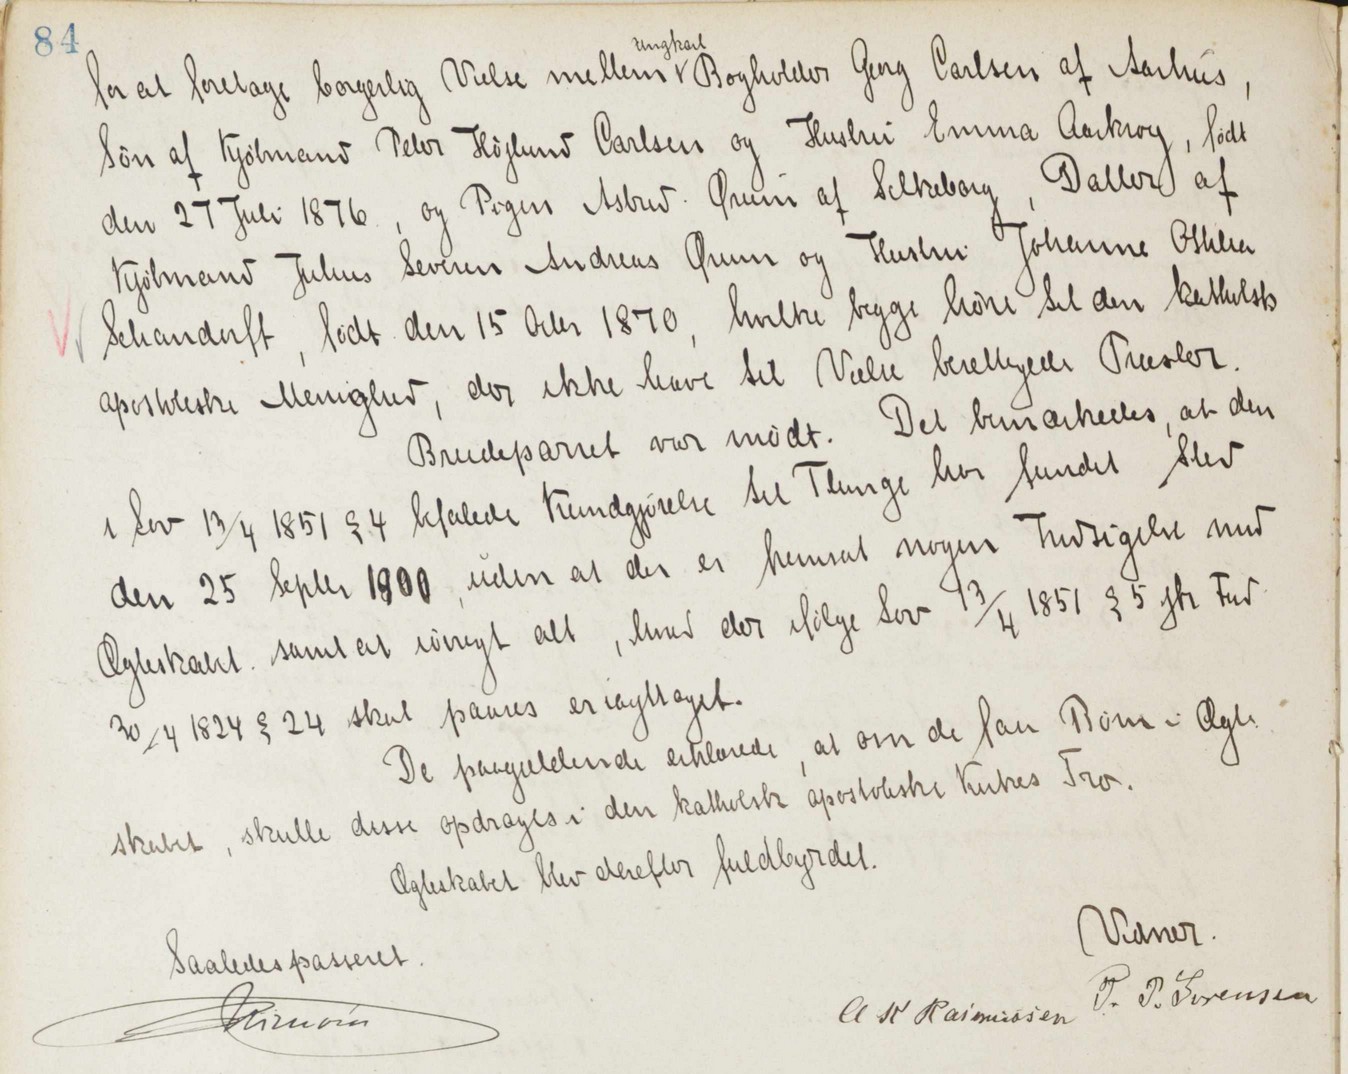 84
for at foretage borgerlig Vielse mellem ungkarl Bogholder Georg Carlsen af Aarhus,
Søn af Kjøbmand Peter Höglund Carlsen og Hustru Emma Aarkrog, født
den 27 Juli 1876, og Pigen Astrid Ørum af Silkeborg, Datter af
Kjøbmand Julius Severin Andreas Ørum og Hustru Johanne Othilia
Schandorff, født den 15 Octbr 1870, hvilke begge höre til den katholsk
apostoliske Menighed, der ikke have til Vielse berettigede Præster.
Brudeparret var mödt. Det bemærkedes, at den
i Lov 13/4 1851 § 4 befalede Kundgjørelse til Thinge har fundet Sted
den 25 Septbr 1900, uden at der er fremsat nogen Indsigelse mod
Ægteskabet samt at iövrigt alt, hvad der ifölge Lov 13/4 1851 § 5 jfr Frd
30/4 1824 § 24 skal paases er iagttaget.
De paagældende erklærede, at om de faa Börn i Ægte
skabet, skulle disse opdrages i den katholsk apostoliske Kirkes Tro.
Ægteskabet blev derefter fuldbyrdet.
Saaledes passeret.
Vidner.
A K Rasmussen P. P. Sørensen